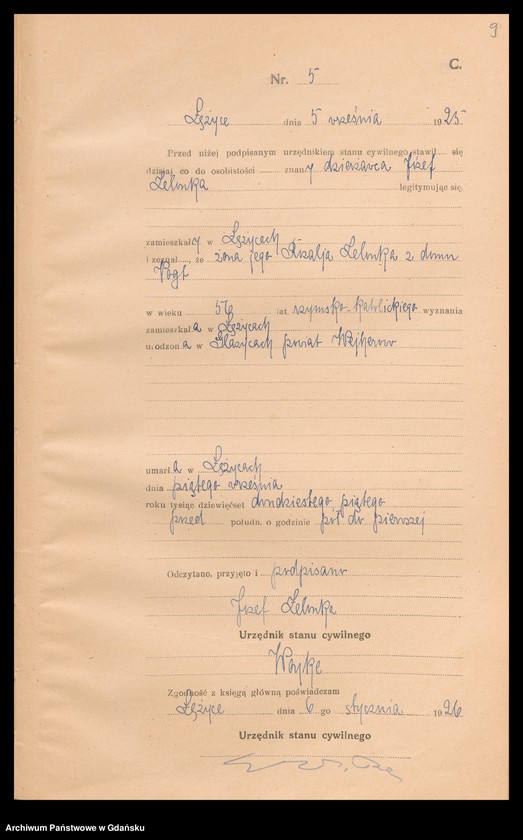 9
C.
Nr. 5
Łężyce dnia 5 września 1925
Przed niżej podpisanym urzędnikiem stanu cywilnego stawił się
dzisiaj co do osobistości znany dzierżawca Józef
Zelonka legitymując się
zamieszkały w Łężycach
i zeznał, że żona jego Rozalja Zelonka z domu
Vogt
w wieku 56 lat rzymsko-katolickiego wyznania
zamieszkała w Łężycach
urodzona w powiat Wejherowo
umarła w Łężycach
dnia piątego września
roku tysiąc dziewięćset dwudziestego piątego
przed połudn. o godzinie pół do pierwszej
Odczytano, przyjęto i podpisano
Józef Zelonka
Urzędnik stanu cywilnego
Woyke
Zgodność z księgą główną poświadczam
Łężyce dnia 6 go stycznia 1926
Urzędnik stanu cywilnego
Archiwum Państwowe w Gdańsku